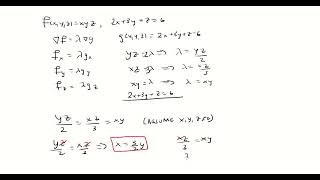 f(x,y,z)=xyz, 2x+3y+z=6
∇f=λ∇g g(x,y,z)=2x+3y+z-6
fx=λgx yz=2λ ⇒ λ=yz/2
fy=λgy xz=3λ ⇒ λ=xz/3
fz=λgz xy=λ ⇒ λ=xy
2x+3y+z=6
yz/2=xz/3=xy (ASSUME x,y,z≠0)
yz/2=xz/3 ⇒ x=3/2y xz/3=xy